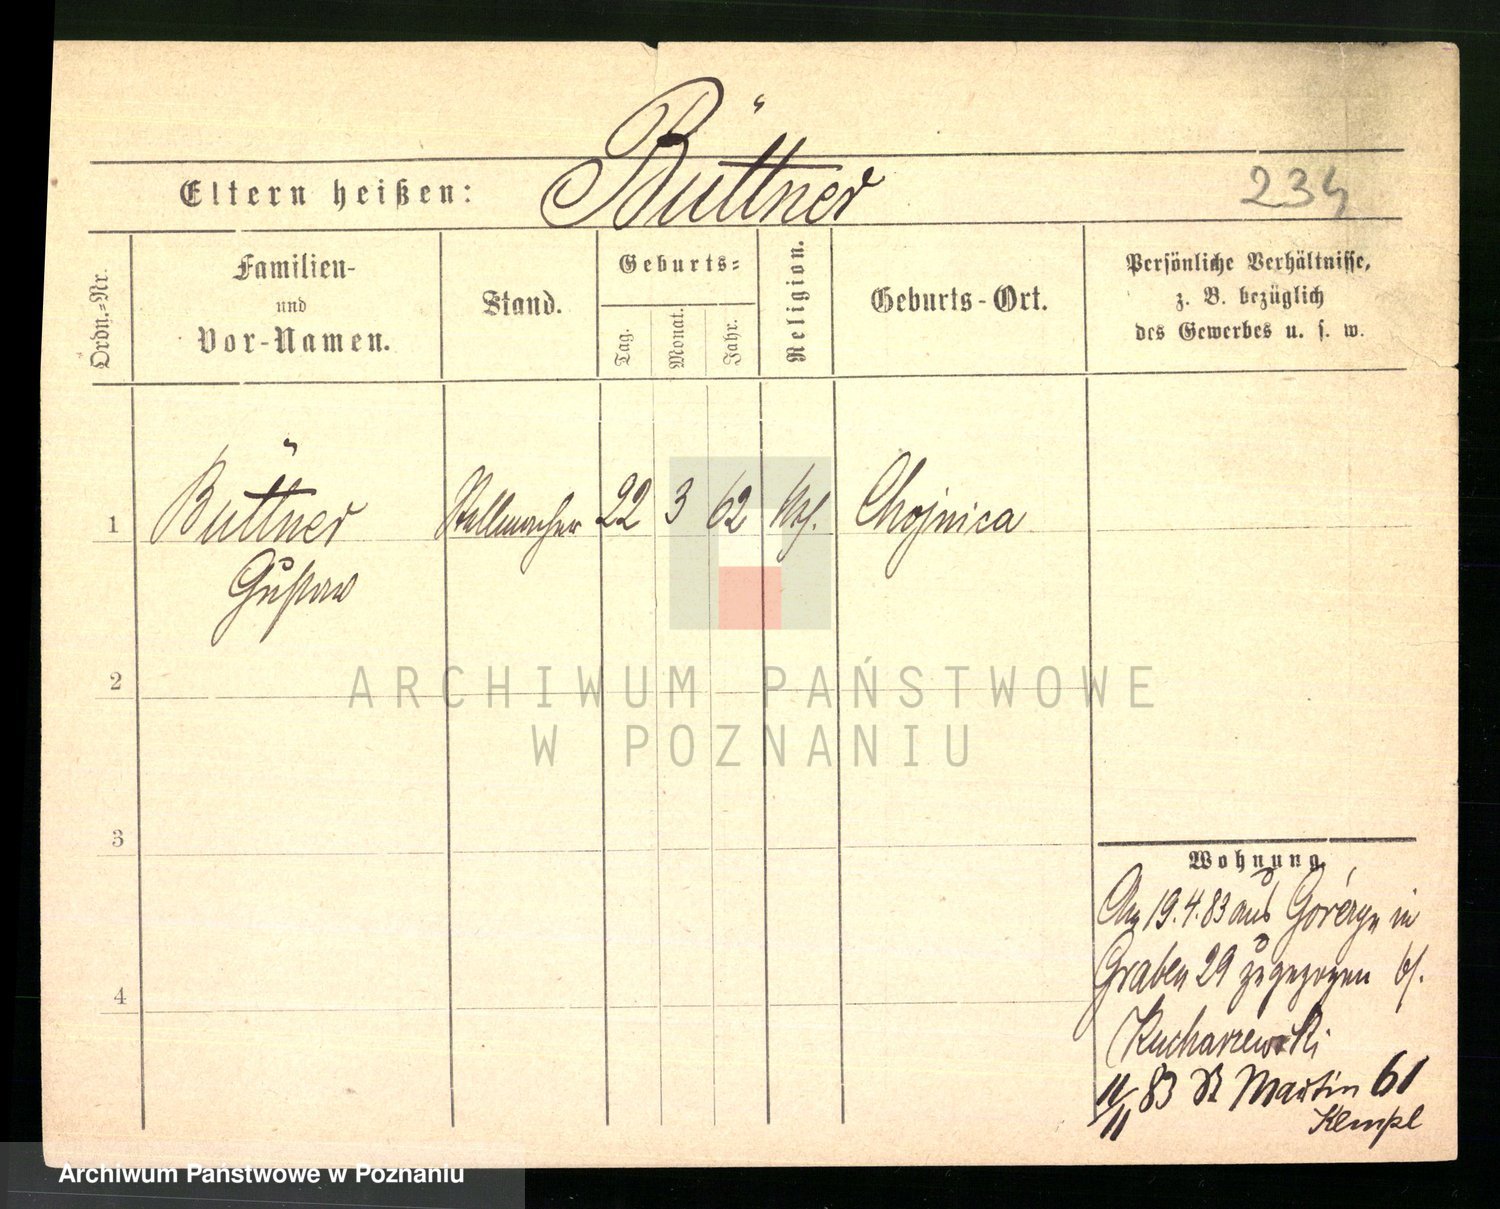 Büttner
Eltern heißen:
234
Ordn.-Nr.
Familien-
und
Vor-Namen.
Stand.
Geburts-
Tag.
Monat.
Jahr.
Religion.
Geburts-Ort.
Persönliche Verhältnisse,
z. B. bezüglich
des Gewerbes u. s. w.
1
Büttner
Gustav
Stellmacher
22
3
62
Chojnica
2
ARCHIWUM PAŃSTWOWE
W POZNANIU
3
4
Wohnung
Am 19.4.83 aus in
Graben 29 zugezogen b/.
Kucharzewski
11/11 83 St Martin 61
Klempl
Archiwum Państwowe w Poznaniu